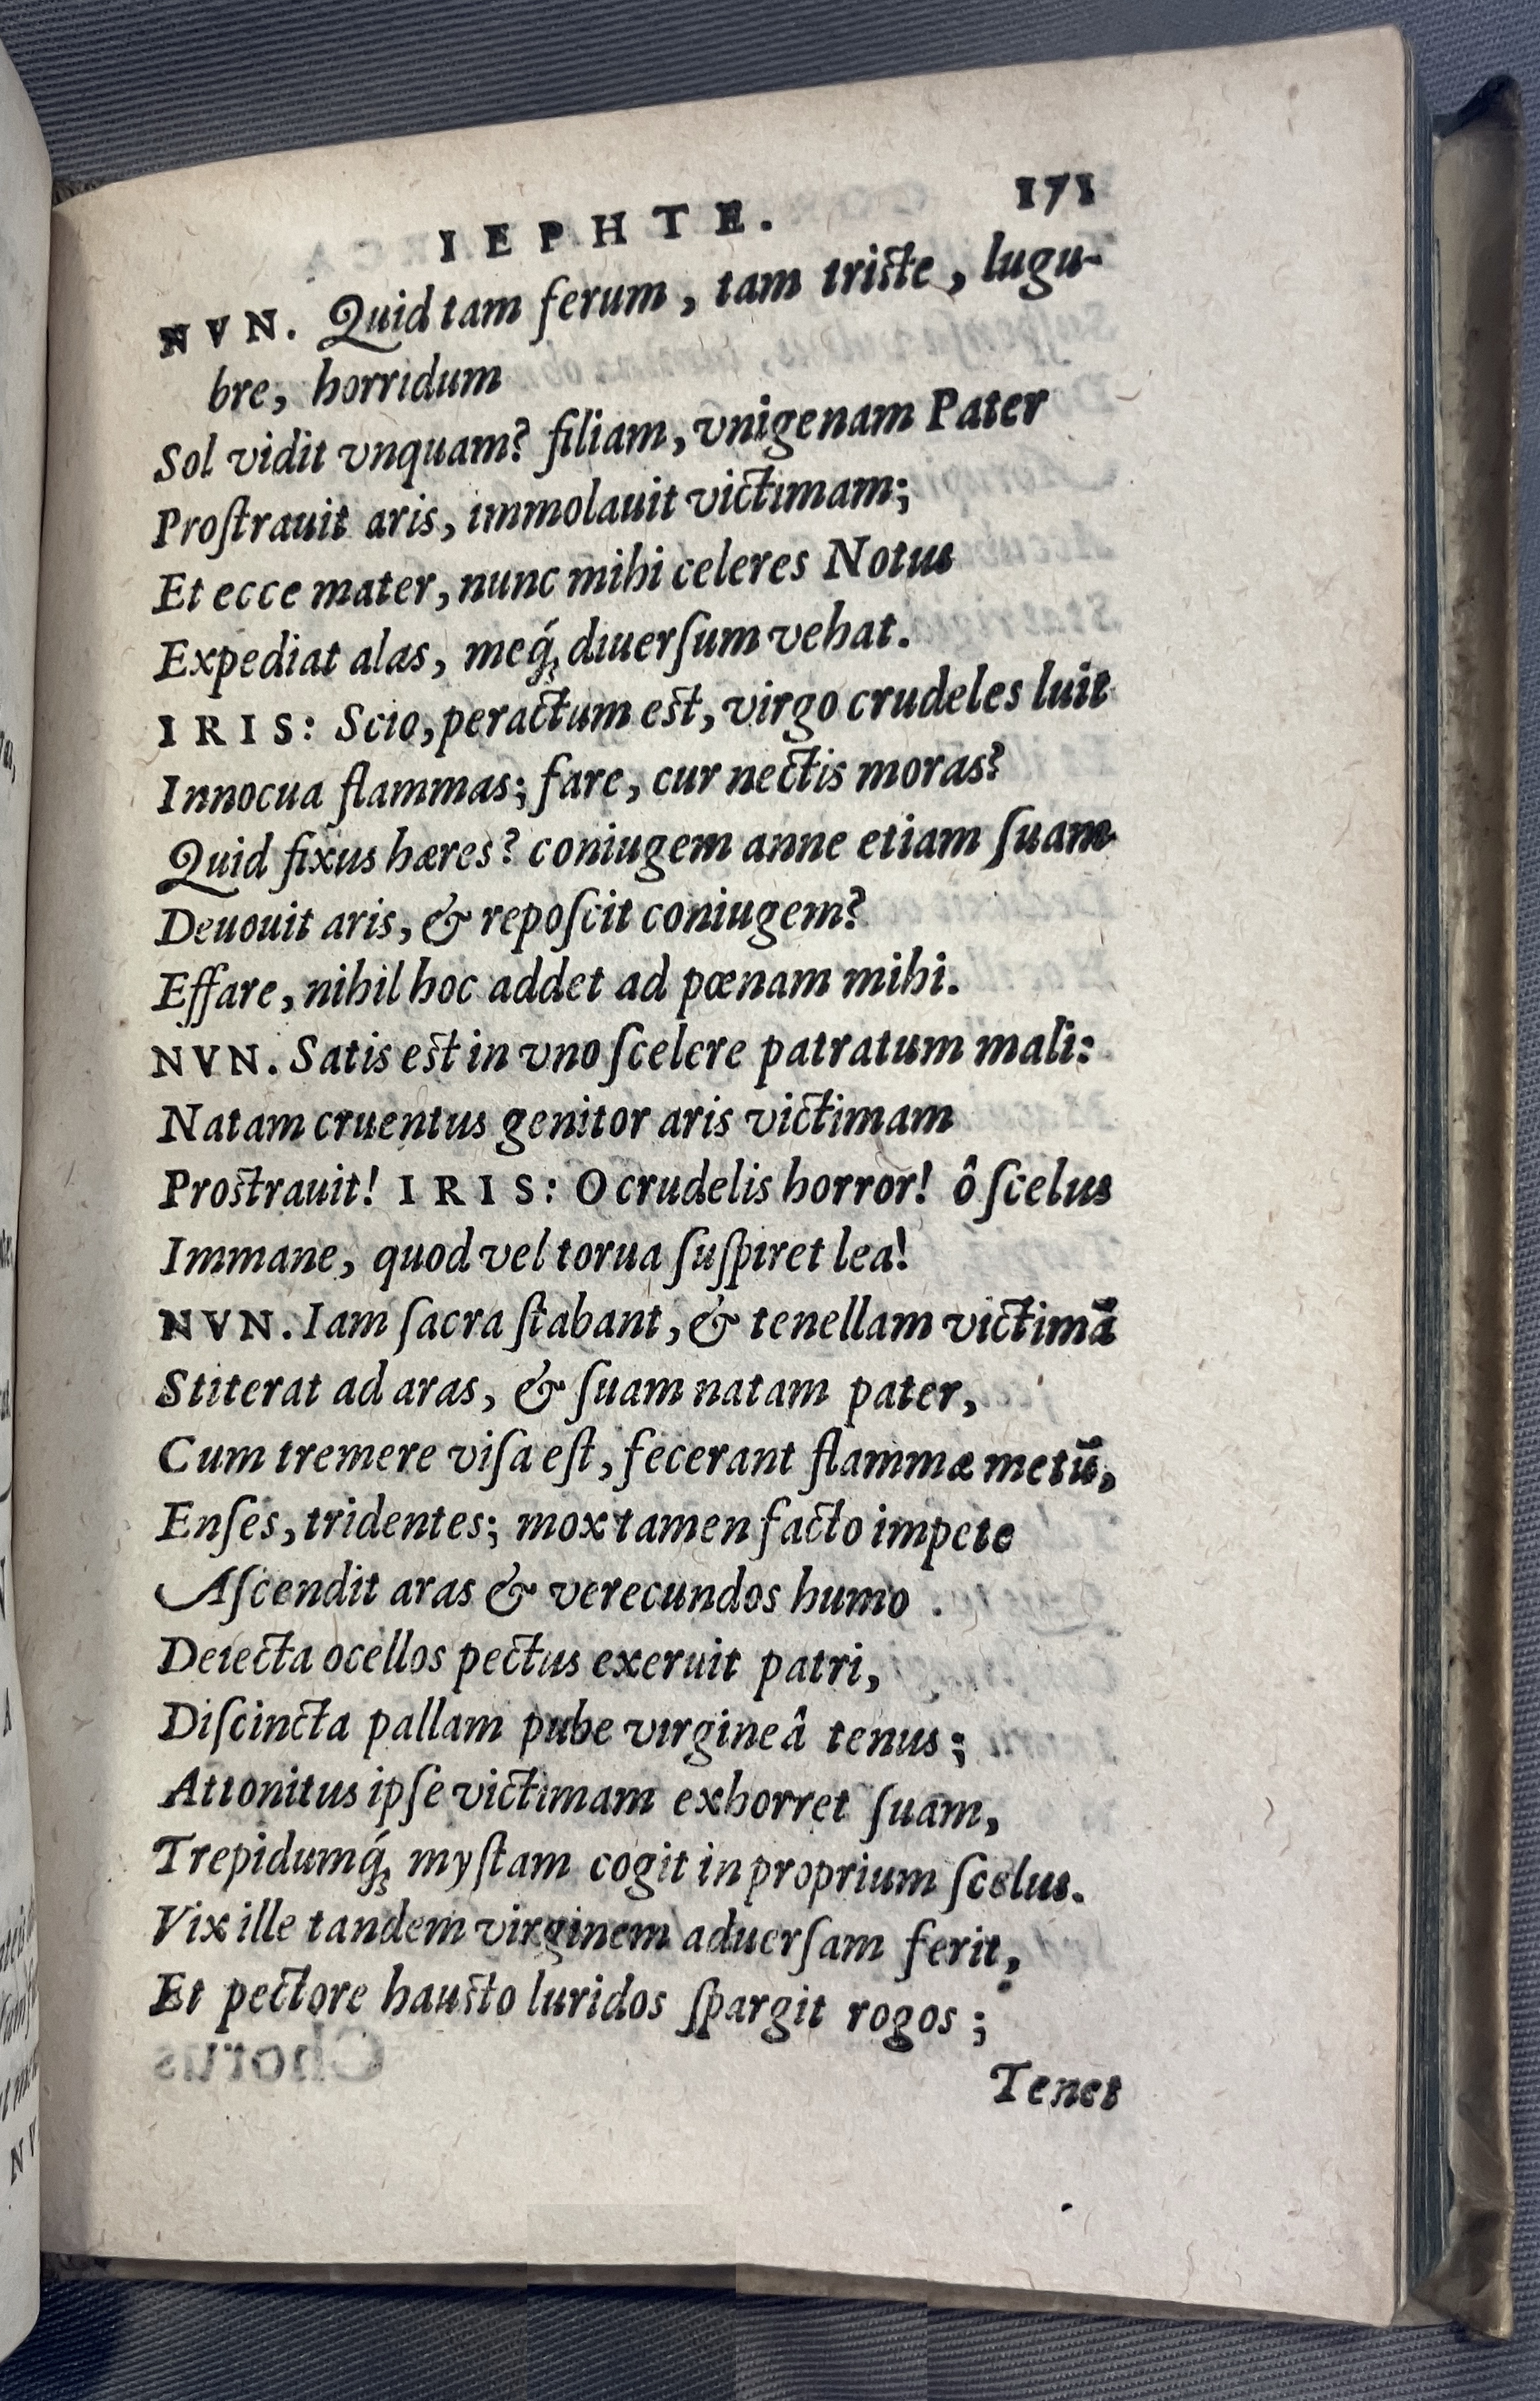 IEPHTE. 171
NVN. Quid tam ferum, tam triste, lugu-
bre, horridum
Sol vidit vnquam? filiam, vnigenam Pater
Proſtrauit aris, immolauit victimam;
Et ecce mater, nunc mihi celeres Notus
Expediat alas, meq́ꝫ diuerſum vehat.
IRIS: Scio, peractum est, virgo crudeles luit
Innocua flammas; fare, cur nectis moras?
Quid fixus hæres? coniugem anne etiam ſuam
Deuouit aris, & repoſcit coniugem?
Effare, nihil hoc addet ad pœnam mihi.
NVN. Satis est in vno ſcelere patratum mali:
Natam cruentus genitor aris victimam
Prostrauit! IRIS: O crudelis horror! ô ſcelus
Immane, quod vel torua ſuſpiret lea!
NVN. Iam ſacra ſtabant, & tenellam victimā
Stiterat ad aras, & ſuam natam pater,
Cum tremere viſa eſt, fecerant flammæ metū,
Enſes, tridentes; mox tamen facto impete
Aſcendit aras & verecundos humo .
Deiecta ocellos pectus exeruit patri,
Diſcincta pallam pube virgineâ tenus;
Attonitus ipſe victimam exhorret ſuam,
Trepidumq́ꝫ myſtam cogit in proprium ſcelus.
Vix ille tandem virginem aduerſam ferit,
Et pectore hausto luridos ſpargit rogos;
Tenet